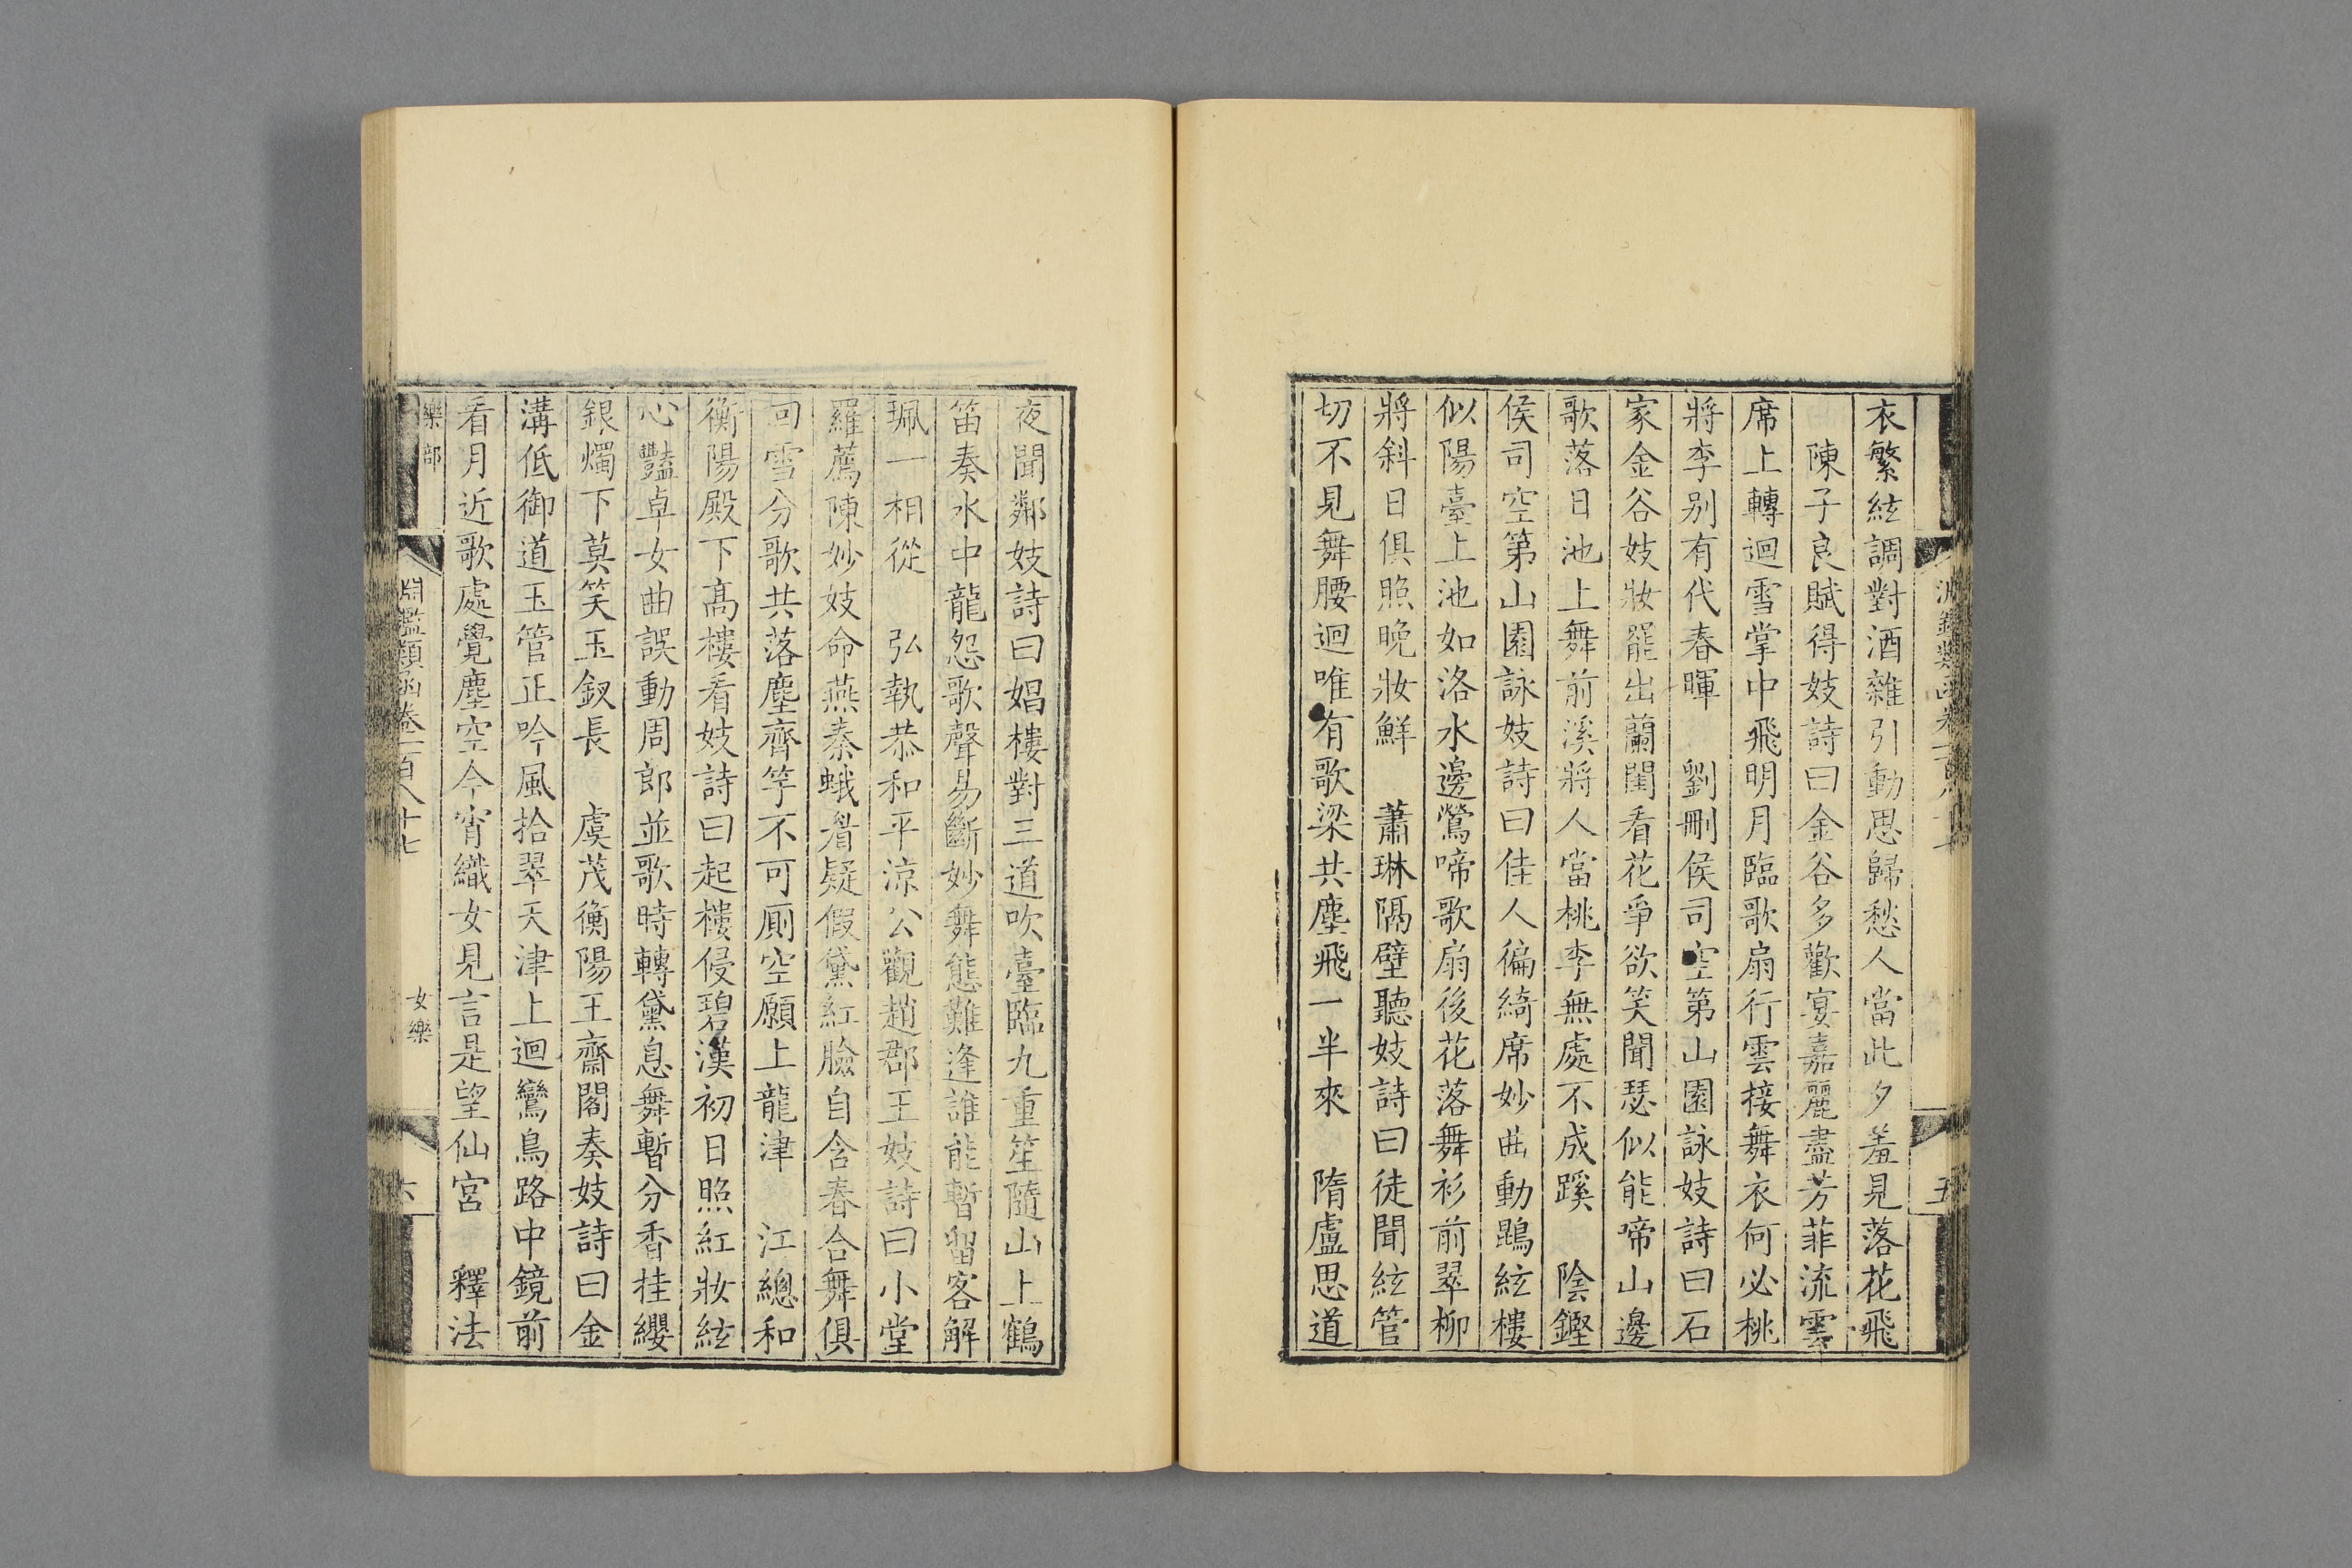 衣繁絃調對酒雜引動思歸愁人當此夕羞見落花飛
陳子良賦得妓詩曰金谷多歡宴嘉麗盡芳菲流雲
席上轉迴雪掌中飛明月臨歌扇行雲接舞衣何必桃
將李別有代春暉　劉刪侯司空第山園詠妓詩曰石
家金谷妓妝罷出蘭閨看花爭欲笑聞瑟似能啼山邊
歌落日池上舞前溪將人當桃李無處不成蹊　陰鏗
侯司空第山園詠妓詩曰佳人徧綺席妙曲動鵾絃樓
似陽臺上池如洛水邊鶯啼歌扇後花落舞衫前翠柳
將斜日俱照晚妝鮮　蕭琳隔壁聽妓詩曰徒聞絃管
切不見舞腰迴唯有歌梁共塵飛一半來　隋盧思道
夜聞鄰妓詩曰娼樓對三道吹臺臨九重笙隨山上鶴
笛奏水中龍怨歌聲易斷妙舞態難逢誰能暫留客解
珮一相從　弘執恭和平涼公觀趙郡王妓詩曰小堂
羅薦陳妙妓命燕秦蛾眉疑假黛紅臉自含春合舞俱
回雪分歌共落塵齊竽不可廁空願上龍津　江總和
衡陽殿下高樓看妓詩曰起樓侵碧漢初日照紅妝絃
心豔卓女曲誤動周郎並歌時轉黛息舞暫分香挂纓
銀燭下莫笑玉釵長　虞茂衡陽王齋閣奏妓詩曰金
溝低御道玉管正吟風拾翠天津上迴鸞鳥路中鏡前
看月近歌處覺塵空今宵織女見言是望仙宮　釋法
樂部
淵鑑類函卷一百八十七
女樂
六